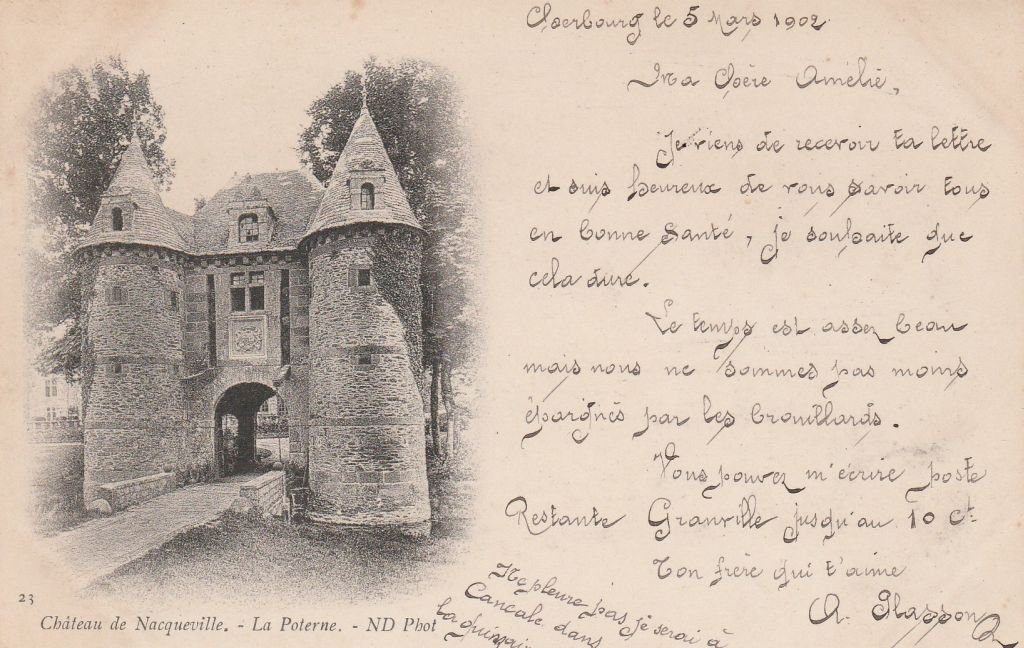 Cherbourg le 5 Mars 1902
Ma Chère Amélie,
Je viens de recevoir ta lettre
et suis heureux de vous savoir tous
en bonne Santé, je souhaite que
cela dure.
Le temps est assez beau
mais nous ne sommes pas moins
épargnés par les brouillards.
Vous pouvez m'écrire poste
Restante Granville jusqu'au 10 ct
Ton frère qui t'aime
A. Glasson
Ne pleure pas je serai à
Cancale dans
la quinzai
23
Château de Nacqueville. - La Poterne. - ND Phot